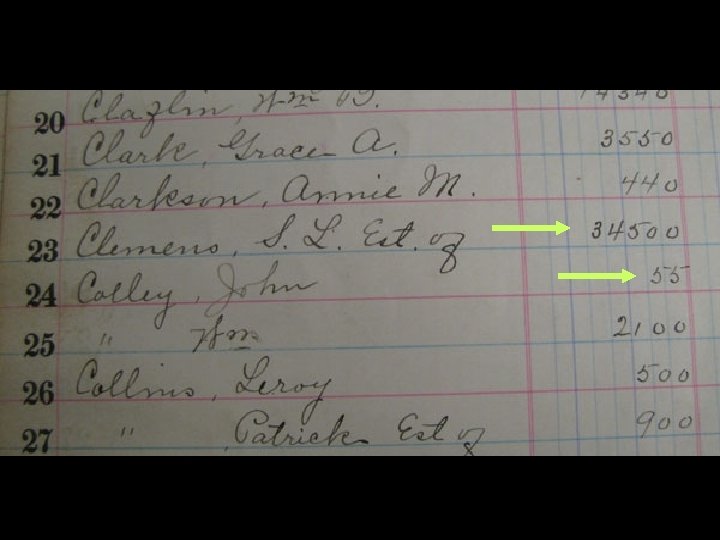 20 Claflin, Wm
21 Clark, Grace A. 3550
22 Clarkson, Annie M. 440
23 Clemens, S. L. Est. of 34500
24 Colley, John 55
25 " Wm 2100
26 Collins, Leroy 500
27 " Patrick Est of 900